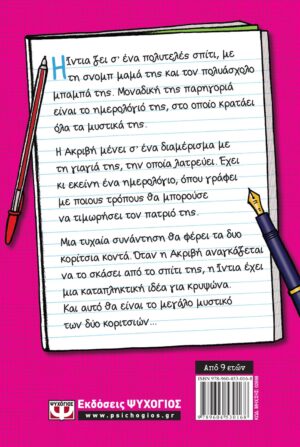 Η Ίντια ζει σ' ένα πολυτελές σπίτι, με
τη σνομπ μαμά της και τον πολυάσχολο
μπαμπά της. Μοναδική της παρηγοριά
είναι το ημερολόγιό της, στο οποίο κρατάει
όλα τα μυστικά της.
Η Ακριβή μένει σ' ένα διαμέρισμα με
τη γιαγιά της, την οποία λατρεύει. Έχει
κι εκείνη ένα ημερολόγιο, όπου γράφει
με ποιους τρόπους θα μπορούσε
να τιμωρήσει τον πατριό της.
Μια τυχαία συνάντηση θα φέρει τα δυο
κορίτσια κοντά. Όταν η Ακριβή αναγκάζεται
να το σκάσει από το σπίτι της, η Ίντια έχει
μια καταπληκτική ιδέα για κρυψώνα.
Και αυτό θα είναι το μεγάλο μυστικό
των δύο κοριτσιών...
Από 9 ετών
ISBN 978-960-453-016-8
9 789604 530168
ΨΥΧΟΓΙΟΣ
Εκδόσεις ΨΥΧΟΓΙΟΣ
www.psichogios.gr